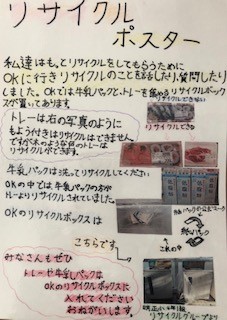 リサイクル
ポスター
私達はもっとリサイクルをしてもらうために
OKに行きリサイクルのことを話したり、質問したり
しました。OKでは牛乳パックと、トレーを集めるリサイクルボック
スが置いてあります。
リサイクルできない
トレーは右の写真のように
もよう付きはリサイクルはできません
ですが木のような色のトレーは
リサイクルができます。
リサイクルできる
牛乳パックは洗ってリサイクルしてください
OKの中では牛乳パックの方が
トレーよりリサイクルされていました。
OKのリサイクルボックスは
紙パック
これの中
こちらです。
みなさんもぜひ
トレーや牛乳パックは
OKのリサイクルボックスに
入れてください
おねがいします。
リサイクルグループより